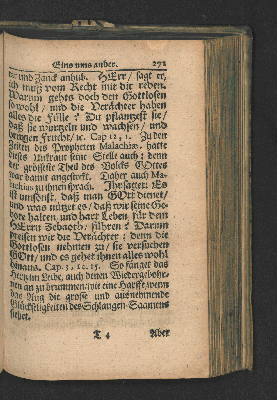 Eins ums ander. 271
und Zanck anhub. HErr/ sagt er,
ich muß vom Recht mit dir reden.
Warum gehts doch den Gottlosen
so wohl/ und die Verächter haben
alles die Fülle? Du pflantzest sie/
daß sie wurzeln und wachsen/ und
bringen Frucht/ ꝛc. Cap. 12, 1. Zu den
Zeiten des Propheten Malachiæ, hatte
dieses Unkraut seine Stelle auch; denn
der grösseste Theil des Volcks GOttes
war damit angesteckt. Daher auch Ma-
lachias zu ihnen sprach. Ihr saget: Es
ist umsonst, daß man GOtt dienet/
und was nützet es/ daß wir seine Ge-
bote halten und hart Leben für dem
HErrn Zebaoth/ führen? Darum
preisen wir die Verächter: denn die
Gottlosen nehmen zu/ sie versuchen
GOtt/ und es gehet ihnen alles wohl
Cap. 3. 14. 15. So fänget das
Hertz im Leibe, auch denen Wiedergebohr-
nen an zu brummen/ wie eine Harffe wenn
das Aug die grosse und ausnehmende
Glückseligkeiten des Schlangen-Saamens
siehet.
T 4 Aber